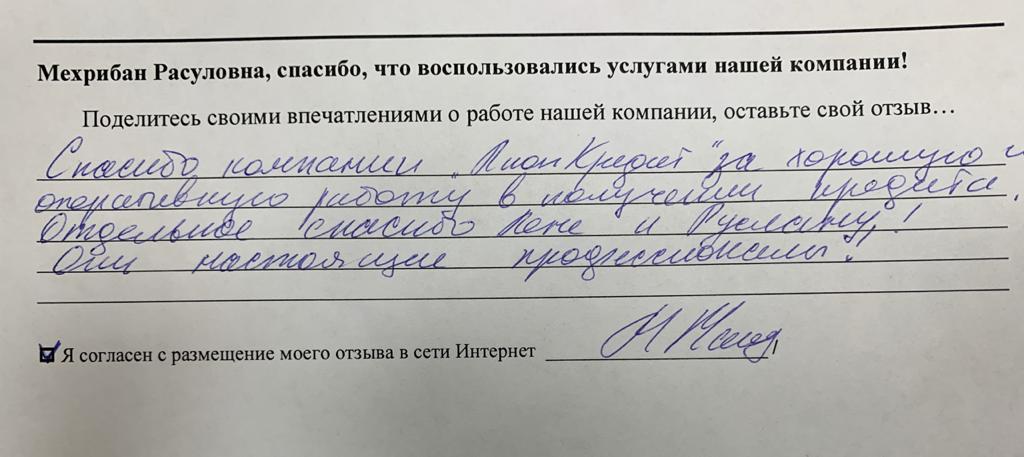 Мехрибан Расуловна, спасибо, что воспользовались услугами нашей компании!
Поделитесь своими впечатлениями о работе нашей компании, оставьте свой отзыв…
Спасибо компании „Лион Кредит" за хорошую и
оперативную работу в получении кредита.
Отдельное спасибо Лене и Руслану!
Они настоящие профессионалы!
Я согласен с размещение моего отзыва в сети Интернет